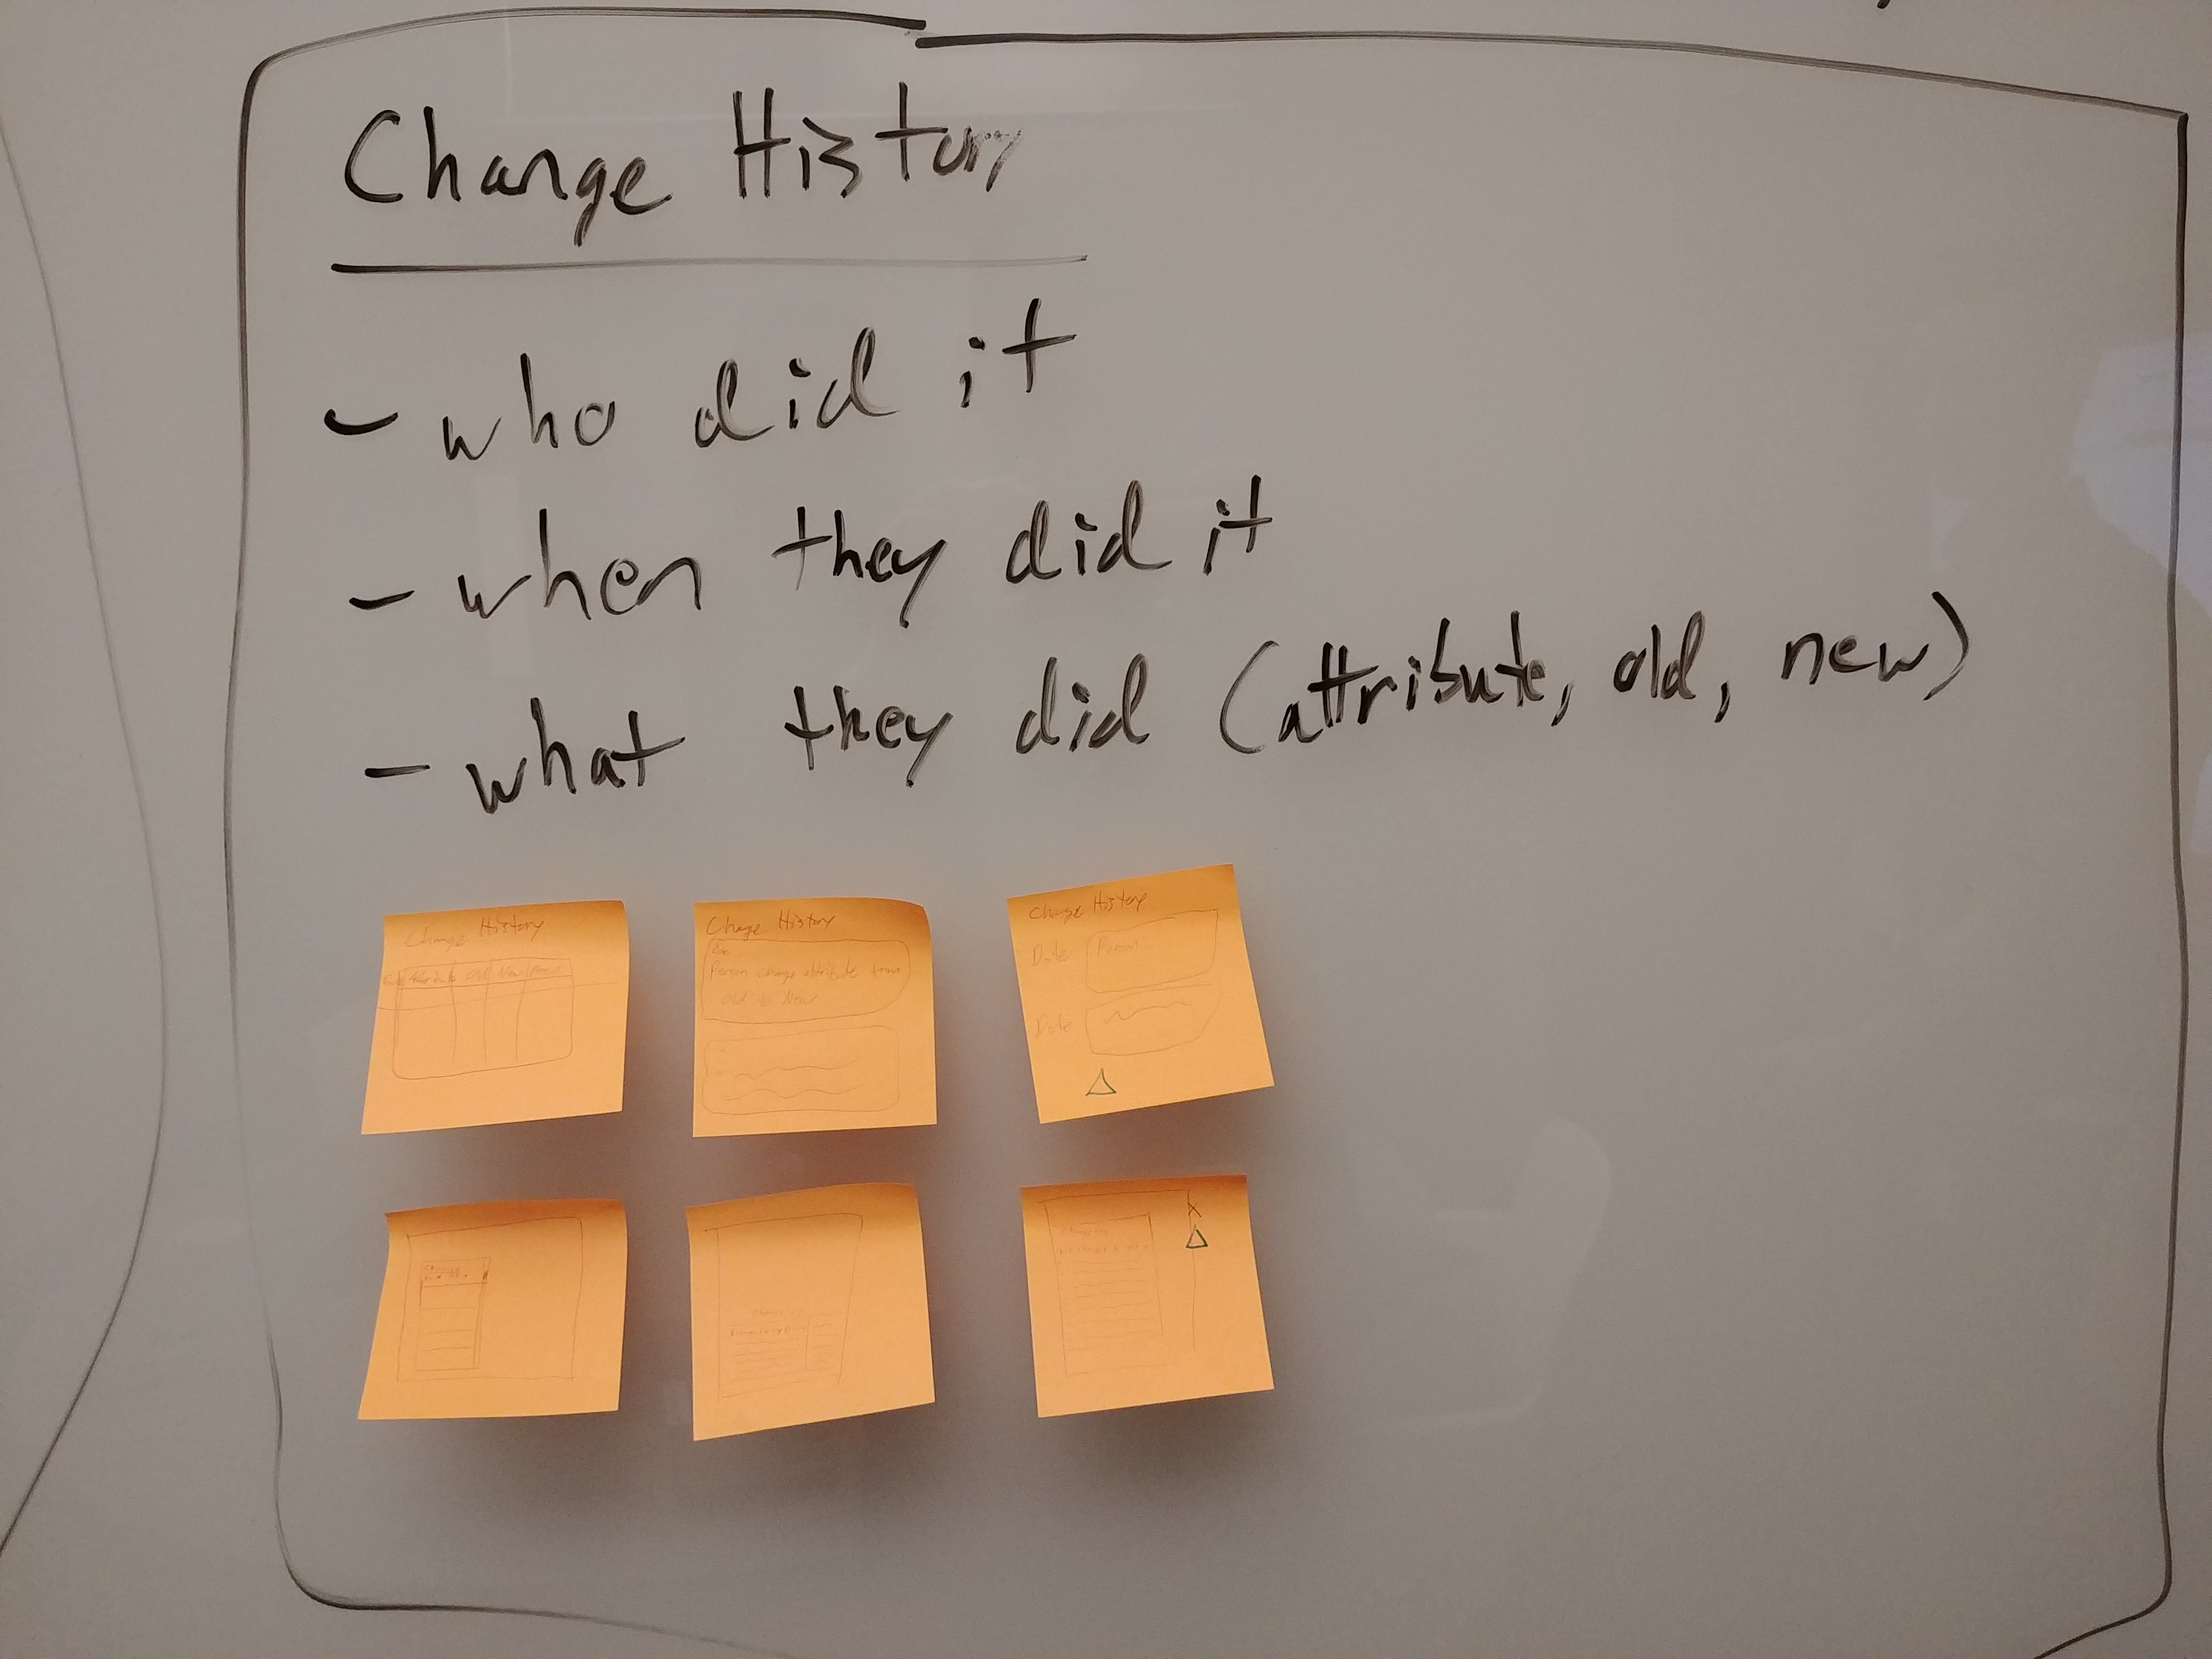 Change History
- who did it
- when they did it
- what they did (attribute, old, new)
Change History
Attribute Old New
Change History
Person change attribute from
old to New
Change History
Date Person
Date